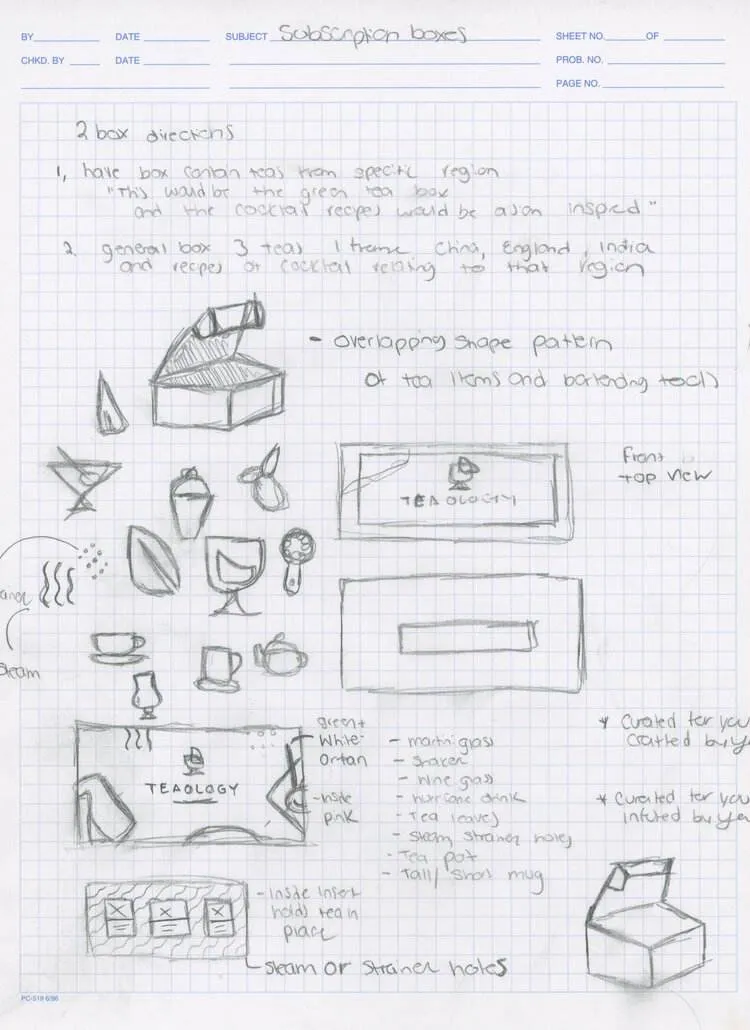 BY DATE SUBJECT Subscription boxes SHEET NO. OF
CHKD. BY DATE PROB. NO.
PAGE NO.
2 box directions
1, have box contain teas from specific region
"This would be the green tea box
and the cocktail recipes would be asian inspied"
2. general box 3 teas 1 theme China, England, India
and recipes of cocktail relating to that region
- overlapping shape pattern
of tea items and bartending tools
Front
top view
TEAOLOGY
steam
TEAOLOGY
green +
white
or tan
- inside
pink
- martini glass
- shaker
- wine glass
- hurricane drink
- Tea leaves
- Steam, strainer holes
- Tea pot
- Tall/short mug
* Curated for you
Crafted by yo
* Curated for you
infused by yo
- inside insert
holds tea in
place
steam or strainer holes
PC-519 6/96